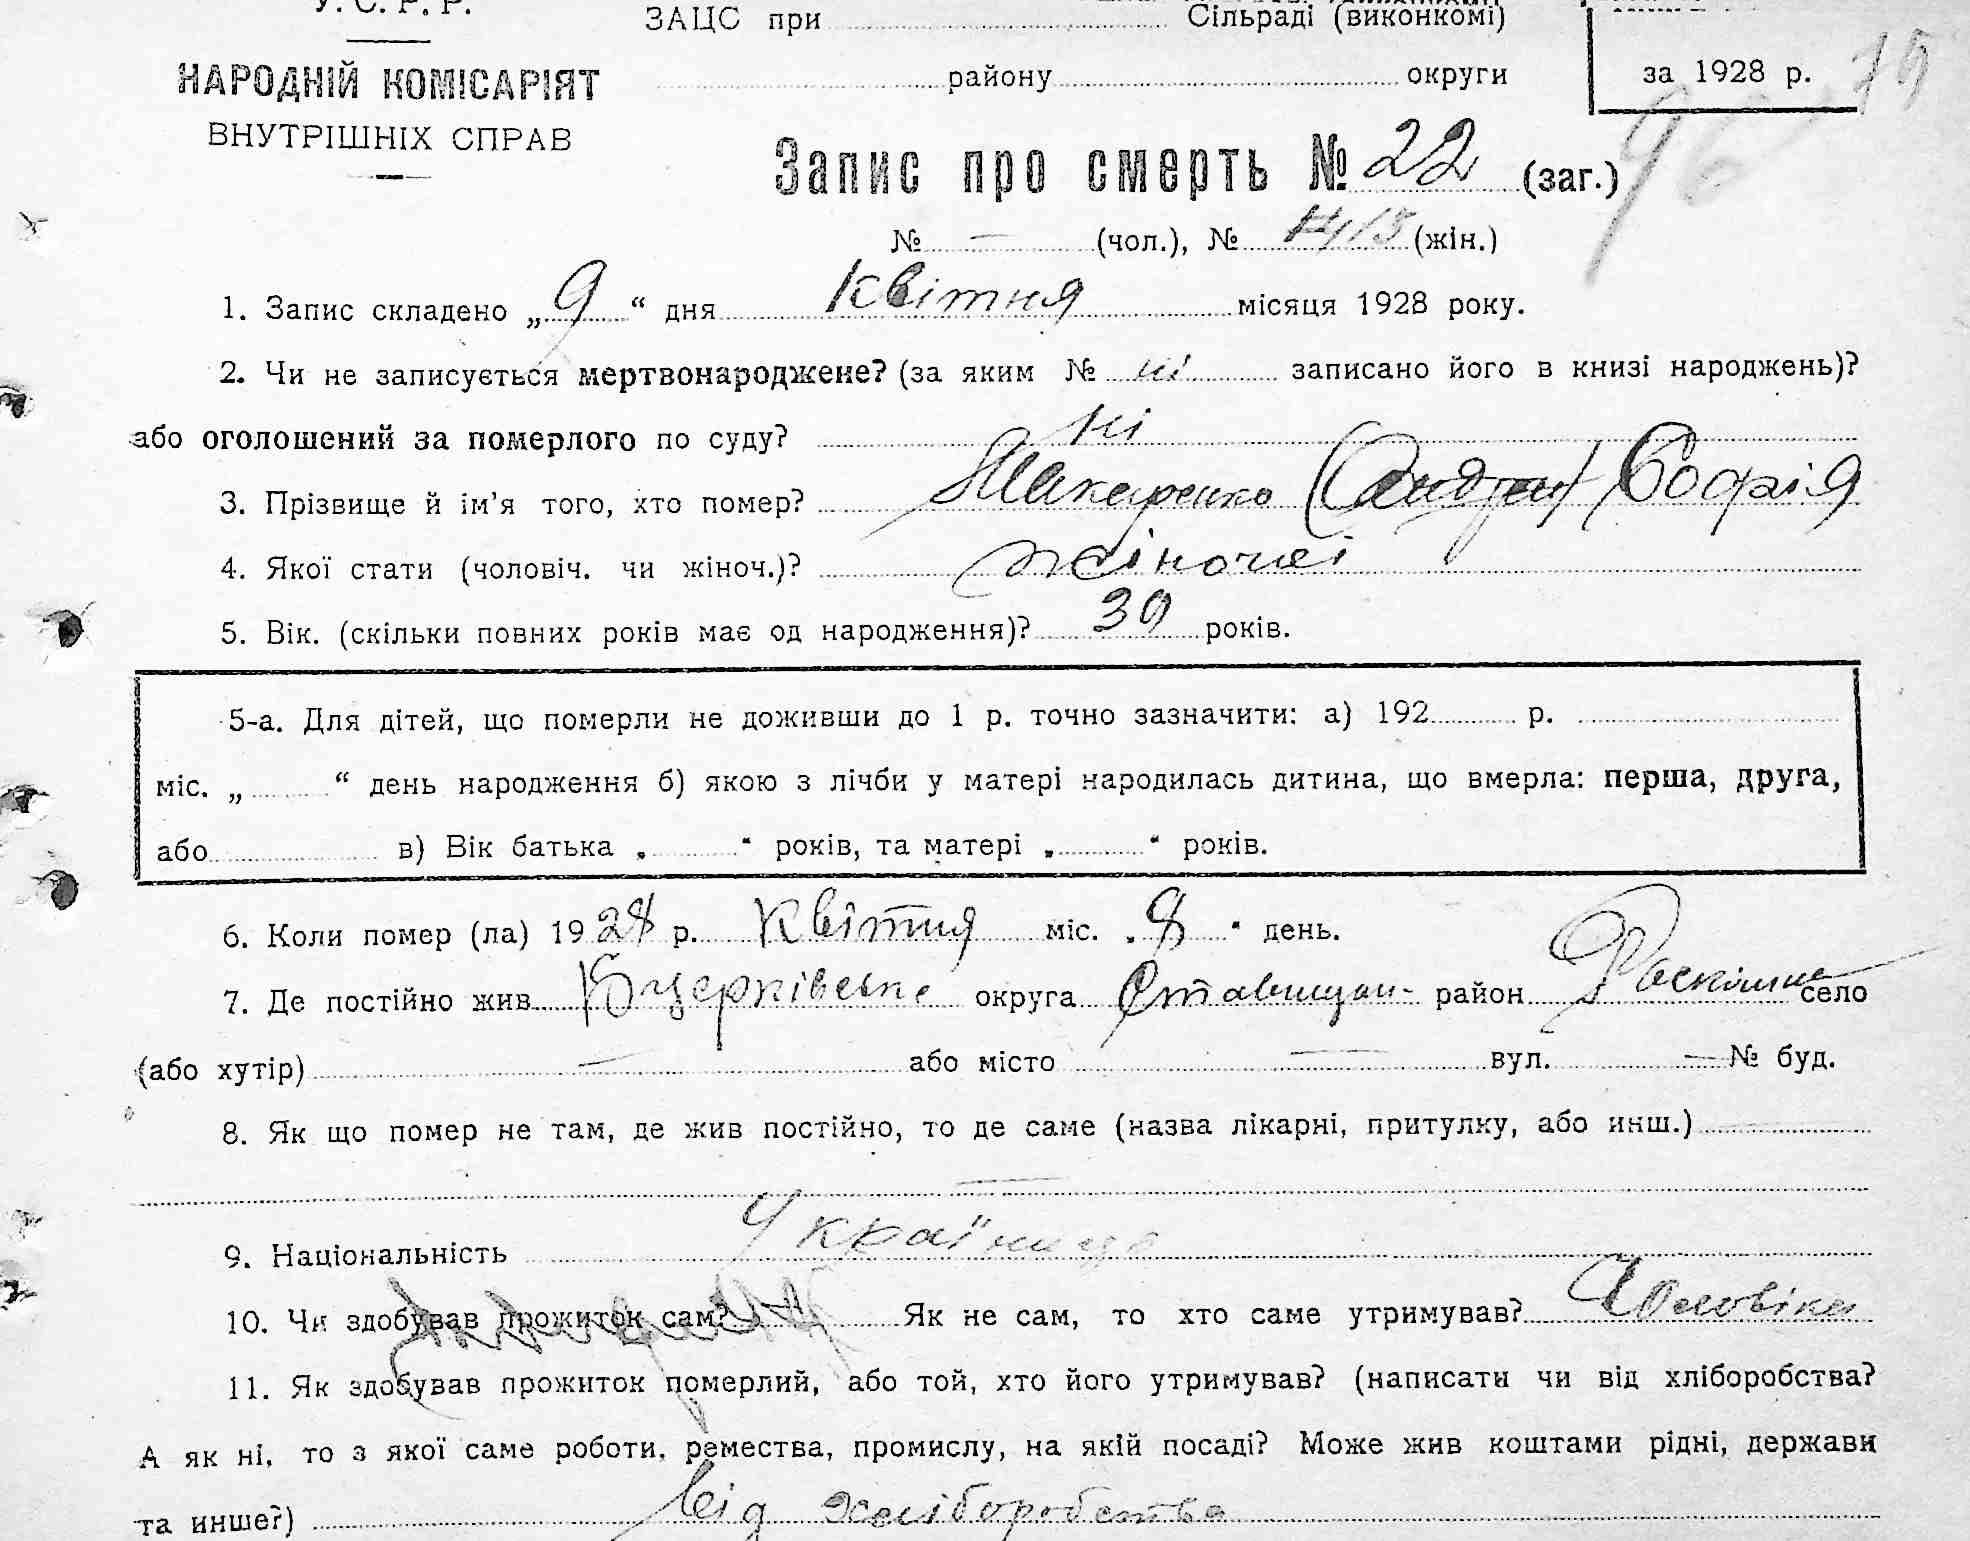 У. С. Р. Р.
ЗАЦС при Сільраді (виконкомі)
НАРОДНІЙ КОМІСАРІЯТ
ВНУТРІШНІХ СПРАВ
району округи
за 1928 р.
Запис про смерть № 22 (заг.)
96
№ — (чол.), № 15 (жін.)
1. Запис складено „9“ дня Квітня місяця 1928 року.
2. Чи не записується мертвонароджене? (за яким № ні записано його в книзі народжень)?
або оголошений за померлого по суду? ні
3. Прізвище й ім’я того, хто помер? Макаренко Софія
4. Якої стати (чоловіч. чи жіноч.)? жіночої
5. Вік. (скільки повних років має од народження)? 39 років.
5-а. Для дітей, що померли не доживши до 1 р. точно зазначити: а) 192 р.
міс. „ “ день народження б) якою з лічби у матері народилась дитина, що вмерла: перша, друга,
або в) Вік батька „ “ років, та матері „ “ років.
6. Коли помер (ла) 1928 р. Квітня міс. „8“ день.
7. Де постійно жив Бцерківське округа Ставищан- район село
(або хутір) — або місто — вул. — № буд.
8. Як що помер не там, де жив постійно, то де саме (назва лікарні, притулку, або инш.)
—
9. Національність Українка
10. Чи здобував прожиток сам? Як не сам, то хто саме утримував? Чоловіка
11. Як здобував прожиток померлий, або той, хто його утримував? (написати чи від хліборобства?
А як ні, то з якої саме роботи, ремества, промислу, на якій посаді? Може жив коштами рідні, держави
та инше?) від хліборобства